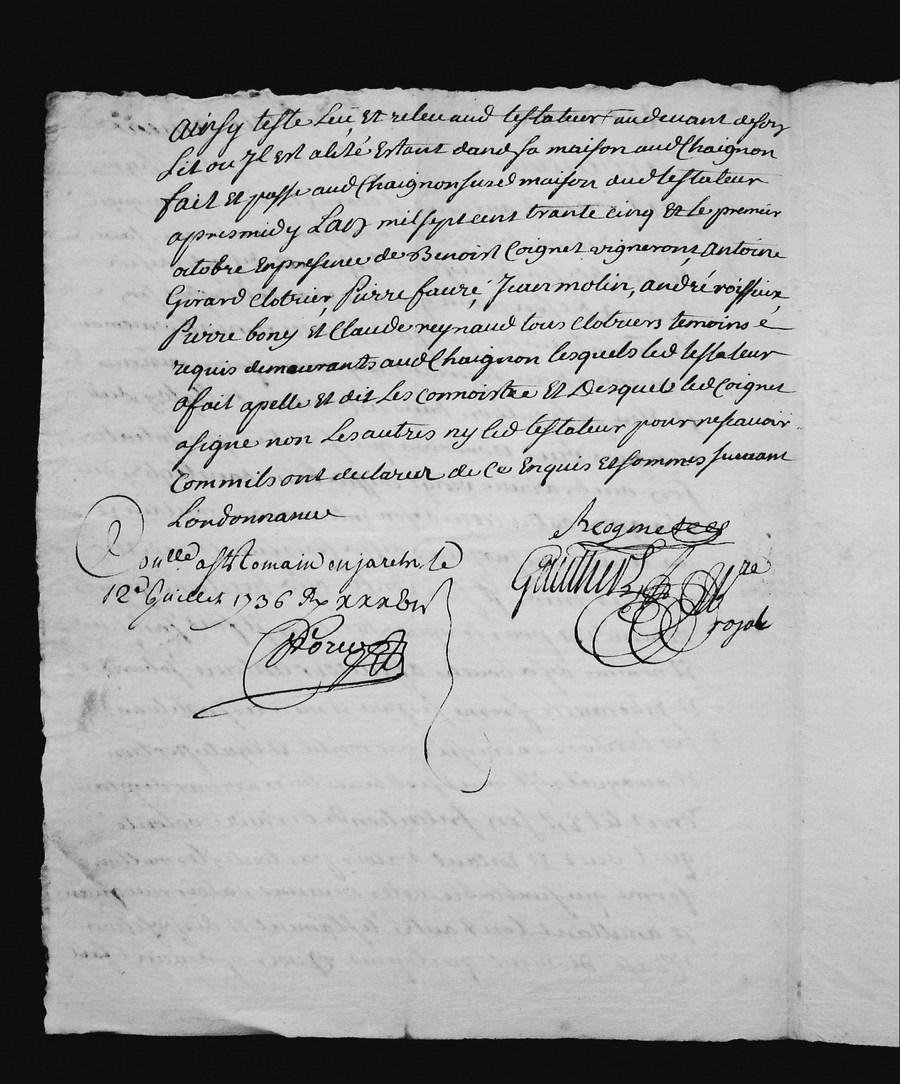 Ainsy teste Leü et releu aud testateur audeuant deson
Lit ou Jl est alité Estant dans sa maison aud Chaignon
fait et passé aud Chaignon susd maison dud testateur
apresmidy Lan mil sept cent trante cinq et le premier
octobre Enpresence de Benoist Coignet vigneront, Antoine
Girard Clotrier, Pierre fauré, Jean molin, andré roissieux,
Pierre bony et Claude reynaud tous Clotriers temoins
requis demeurants aud Chaignon lesquels led testateur
afait apelle et dit Les connoistre et Desquels led Coignet
asigné non Les autres ny led testateur pour nescavoir
Commils ont declarez de Ce Enquis et sommes suivant
Lordonnance
B cogniet
Gauthier
No.re
royal
Con.lle a St Romain enjarest le
12e Juillet 1736 Rx